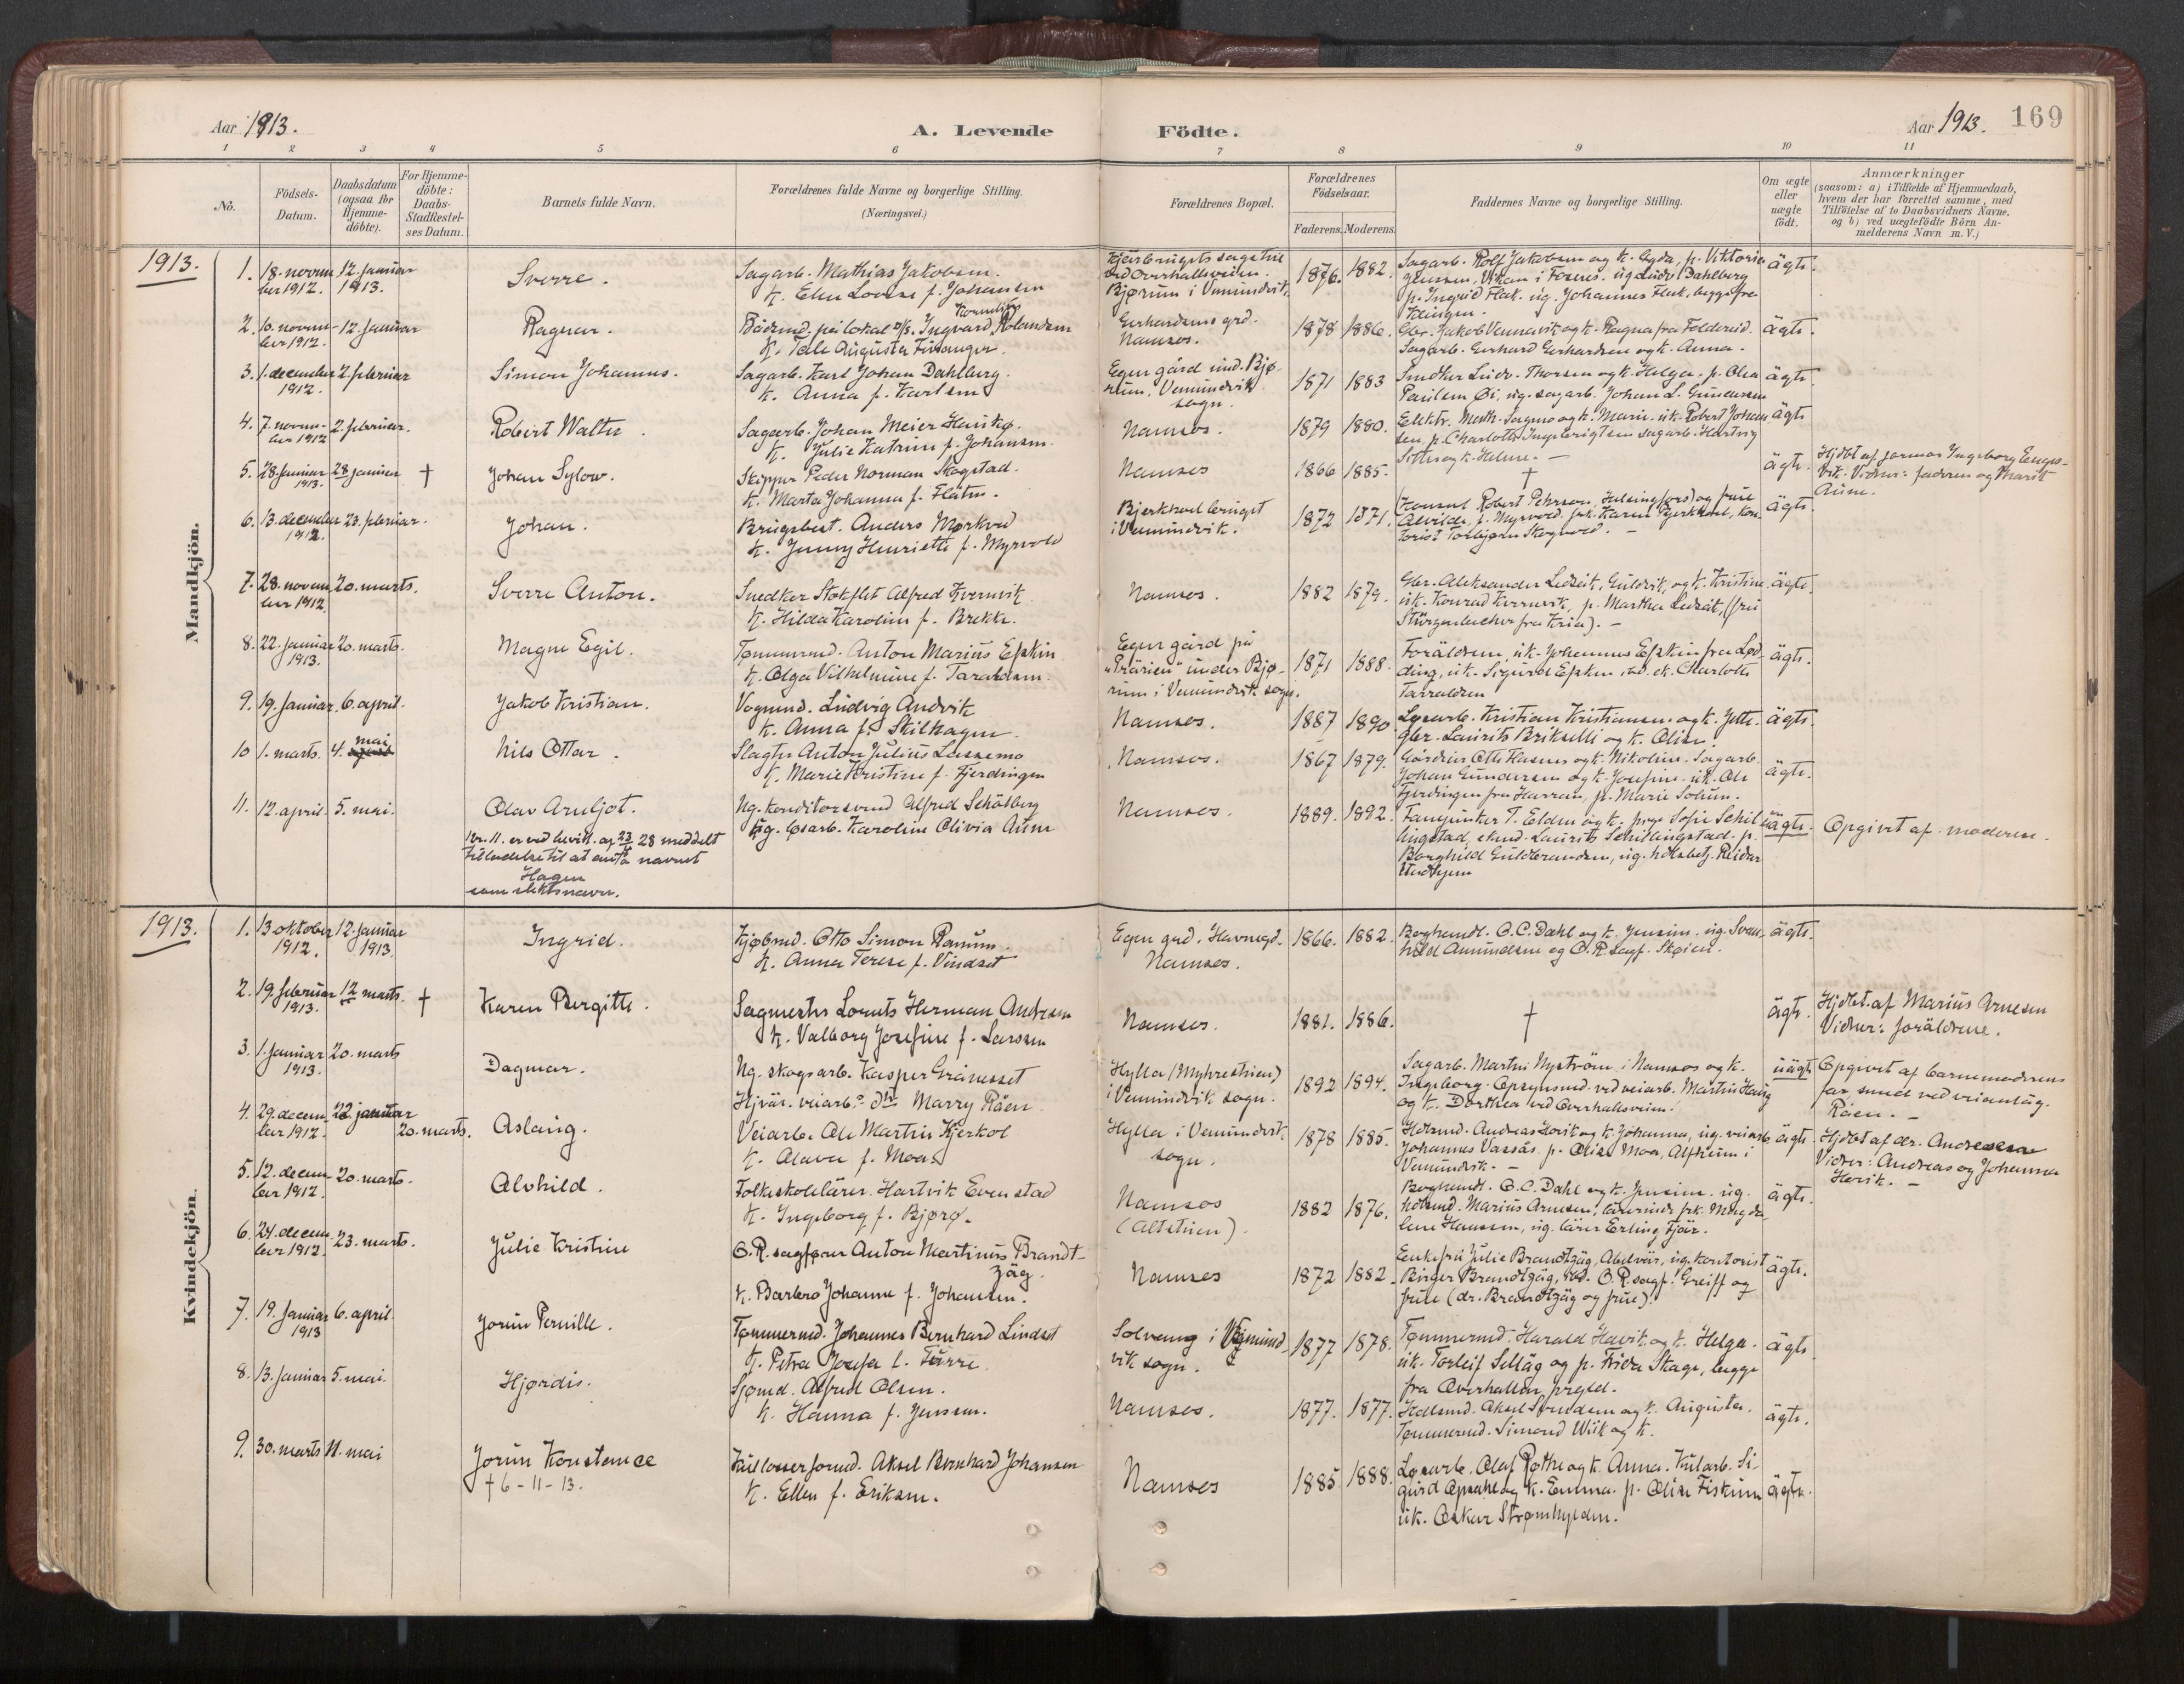 Aar 1913.
A. Levende
Födte.
Aar 1913.
169
1 2 3 4 5 6 7 8 9 10 11
No.
Födsels-
Datum.
Daabsdatum
(ogsaa for
Hjemme-
döbte).
For Hjemme-
döbte:
Daabs-
Stadfæstel-
ses Datum.
Barnets fulde Navn.
Forældrenes fulde Navne og borgerlige Stilling.
(Næringsvei.)
Forældrenes Bopæl.
Forældrenes
Födselsaar.
Faderens. Moderens.
Faddernes Navne og borgerlige Stilling.
Om ægte
eller
uægte
födt.
Anmærkninger
(saasom: a) i Tilfælde af Hjemmedaab,
hvem der har forrettet samme, med
Tilföielse af to Daabsvidners Navne,
og b) ved uægtefödte Börn An-
melderens Navn m. V.)
1913.
Mandkjön.
1. 18. novem- 12. januar
ber 1912. 1913.
Sverre.
Sagarb. Mathias Jakobsen.
k. Elen Lovise f. Johansen
ved Overhalsveien.
Bjørum i Vemundvik.
1876. 1882.
Sagarb. Rolf Jakobsen og k. Gyda, p. Viktoria
Jenssen, Vikan i Fosnes. ug. Ludv. Dahlberg
p. Ingrid Flak. ug. Johannes Flak, begge fra
Klingen.
ägte.
2. 10. novem- 12. januar
ber 1912.
Ragnar.
Kornelius
Baadsmd. på lokal D/S. Ingvard Rolandsen
k. Tale Augusta Finanger.
Gerhardsens grd.
Namsos.
1878 1886.
Gbr. Jakob Vennevik og k. Ragna fra Foldereid.
Sagarb. Gerhard Gerhardsen og k. Anna.
ägte.
3. 1. december 2. februar
1912.
Simon Johannes.
Sagarb. Karl Johan Dahlberg.
k. Anna f. Karlsen
Egen gård und. Bjø-
rum, Vemundvik
sogn.
1871 1883
Snedker Ludv. Thorsen og k. Helga. p. Olea
Paulsen Øi, ug. sagarb. Johan L. Gundersen
ägte.
4. 7. novem- 2. februar.
ber 1912
Robert Walter.
Sagarb. Johan Meier Hauikø.
k. Julie Katrine f. Johansen.
Namsos.
1879 1880.
Elektr. Math. Sagmo og k. Marie. uk. Robert Johan-
sen, p. Charlotte Ingebrigtsen sagarb. Hartvig
Sitter og k. Helene.
ägte
5. 28. januar 28 januar †
1913.
Johan Sylow.
Skipper Peder Norman Skogstad.
k. Marta Johanna f. Flåtm.
Namsos
1866 1885.
†
ägte.
Hjdbt af jormor Ingeborg Enges-
vik. Vidner: faderen og Marit
Aune.
6. 13. december 23. februar.
1912.
Johan.
Brugsbest. Anders Mørkved
k. Jenny Henriette f. Myrvold
Bjerkhoel bruget
i Vemundvik.
1872 1871.
(Konsul Robert Pehrson, Helsingfors) og frue
Alvilde, f. Myrvold. frk. Karen Bjerkhoel, kon-
torist Torbjørn Skogvold.
ägte.
7. 28. novem- 20. marts.
ber 1912.
Sverre Anton.
Snedker Stokflet Alfred Kvernvik
k. Hilda Karoline f. Brekke.
Namsos.
1882 1879.
Gbr. Aleksander Ledsåk, Guldvik, og k. Kristine
uk. Konrad Kvernvik, p. Martha Ledsåk, (fru
Stürzenbecher fra Kria).
ägte.
8. 22. januar 20. marts.
1913.
Magne Egil.
Tømmermd. Anton Marius Eskin
k. Olga Vilhelmine f. Taraldsen.
Egen gård på
"Prärien" under Bjø-
rum i Vemundvik sogn.
1871 1888.
Foräldrene, uk. Johannes Eskin fra Lød-
ding, uk. Sigurd Eskin
Taraldsen
ägte.
9. 19. januar. 6. april.
Jakob Kristian.
Vognmd. Ludvig Andvik
k. Anna f. Skilhagen
Namsos.
1887 1890.
Løsarb. Kristian Kristiansen. og k. Jette.
Gbr. Laurits Brikselli og k. Oline.
ägte.
10 1. marts. 4. mai
Nils Ottar.
Slagter Anton Julius Lassemo
k. Marie Kristine f. Fjerdingen
Namsos.
1867 1879.
Gårdeier Otto Hasnes og k. Nikoline. Sagarb.
Johan Gundersen og k. Josefine. uk. Ole
Fjerdingen fra Harran, p. Marie Solum.
ägte.
11. 12. april. 5. mai.
Olav Arnljot.
Nr. 11. er ved bevill. af 23/ 28 meddelt
tilladelse til at anta navnet
Hagen
som slektsnavn.
Ug. konditorsvend Alfred Schølberg
Ug. løsarb. Karoline Olivia Aune
Namsos.
1889. 1892.
Fanejunker T. Elden og k. Sofie Schil-
lingstad, ekmd. Laurits Schillingstad. p.
Borghild Guldbrandsen, ug. hdlsbetj. Reidar
uägte.
Opgivet af moderen.
1913.
Kvindekjön.
1. 13. oktober 12. januar
1912. 1913.
Ingrid.
Kjøbmd. Otto Simon Ranum.
k. Anna Terese f. Vindset
Egen grd. Havnegd.
Namsos.
1866. 1882.
Boghandl. O. C. Dahl og k. Jensine. ug. Svan-
hild Amundsen og O. R. sagf. Skøien.
ägte.
2. 19. februar 12 marts. †
1913.
Karen Bergitte.
Sagmester Lorents Herman Andresen
k. Valborg Josefine f. Larssen
Namsos.
1881. 1886.
†
ägte.
Hjdbt. af Marius Arnesen
Vidner: foräldrene.
3. 1. januar 20. marts
1913.
Dagmar.
Ug. skogsarb. Kasper Grånesset
Hjvär. veiarb. dtr Marry Råen
Hylla (Myhrestrien)
i Vemundvik sogn.
1892 1894.
Sagarb. Martin Nyström i Namsos og k.
Ingeborg. Opsynsmd. ved veiarb. Martin Haug
og k. Dorthea ved Overhalsveien.
uägte
Opgivet af barnemoderens
far smed ved veianläg.
Råen.
4. 29. decem- 22 januar
ber 1912. 20. marts.
Aslaug.
Veiarb. Ole Martin Kjerkol
k. Olava f. Moa.
Hylla i Vemundvik
sogn.
1878 1885.
Hdlsmd. Andreas Hovik og k. Johanna, ug. veiarb.
Johannes Vassås. p. Oline Moa, Alfheim i
Vemundvik.
ägte.
Hjdbt af dr. Andresen
Vidner: Andreas og Johanna
Hovik.
5. 12. decem- 20. marts.
ber 1912.
Alvhild.
Folkeskolelärer. Hartvik Evenstad
k. Ingeborg f. Bjørø.
Namsos
(Altstrien).
1882 1876.
Boghandl. O. C. Dahl og k. Jensine. ug.
hdlsmd. Marius Arnesen, lärerinde frk. Magda-
lene Hanssen, ug. lärer Erling Fjär.
ägte.
6. 24. decem- 23. marts.
ber 1912.
Julie Kristine
O. R. sagfører Anton Martinus Brandt-
zäg.
k. Barbro Johanne f. Johansen.
Namsos
1872 1882.
Enkefru Julie Brandtzäg, Abelvär, ug. kontorist
Birger Brandtzäg, O. R. sagf. Greiff og
frue (dr. Brandtzäg og frue).
ägte.
7. 19. januar 6. april.
1913
Jorun Pernille.
Tømmermd. Johannes Bernhard Lindset
k. Petra Josefa l. Furre
Solvang i Vemund-
vik sogn.
1877 1878.
Tømmermd. Harald Havik og k. Helga.
uk. Torleif Selläg og p. Frida Skage, begge
fra Overhallen prgjld.
ägte
8. 13. januar 5. mai.
Hjørdis.
Sjømd. Alfred Olsen.
k. Hanna f. Jenssen.
Namsos.
1877. 1877.
Hdlsmd. Aksel Svendsen og k. Augusta.
Tømmermd. Simond Wiik og k.
ägte.
9. 30. marts 11. mai
Jorun Konstance
† 6-11-13.
Aksel Bernhard Johansen
k. Ellen f. Eriksen.
Namsos
1885 1888.
Løsarb. Olaf Røthe og k. Anna. Kularb. Si-
gurd Opdahl og k. Emma. p. Oline Fiskum
uk. Oskar Strømhylden.
ägte.